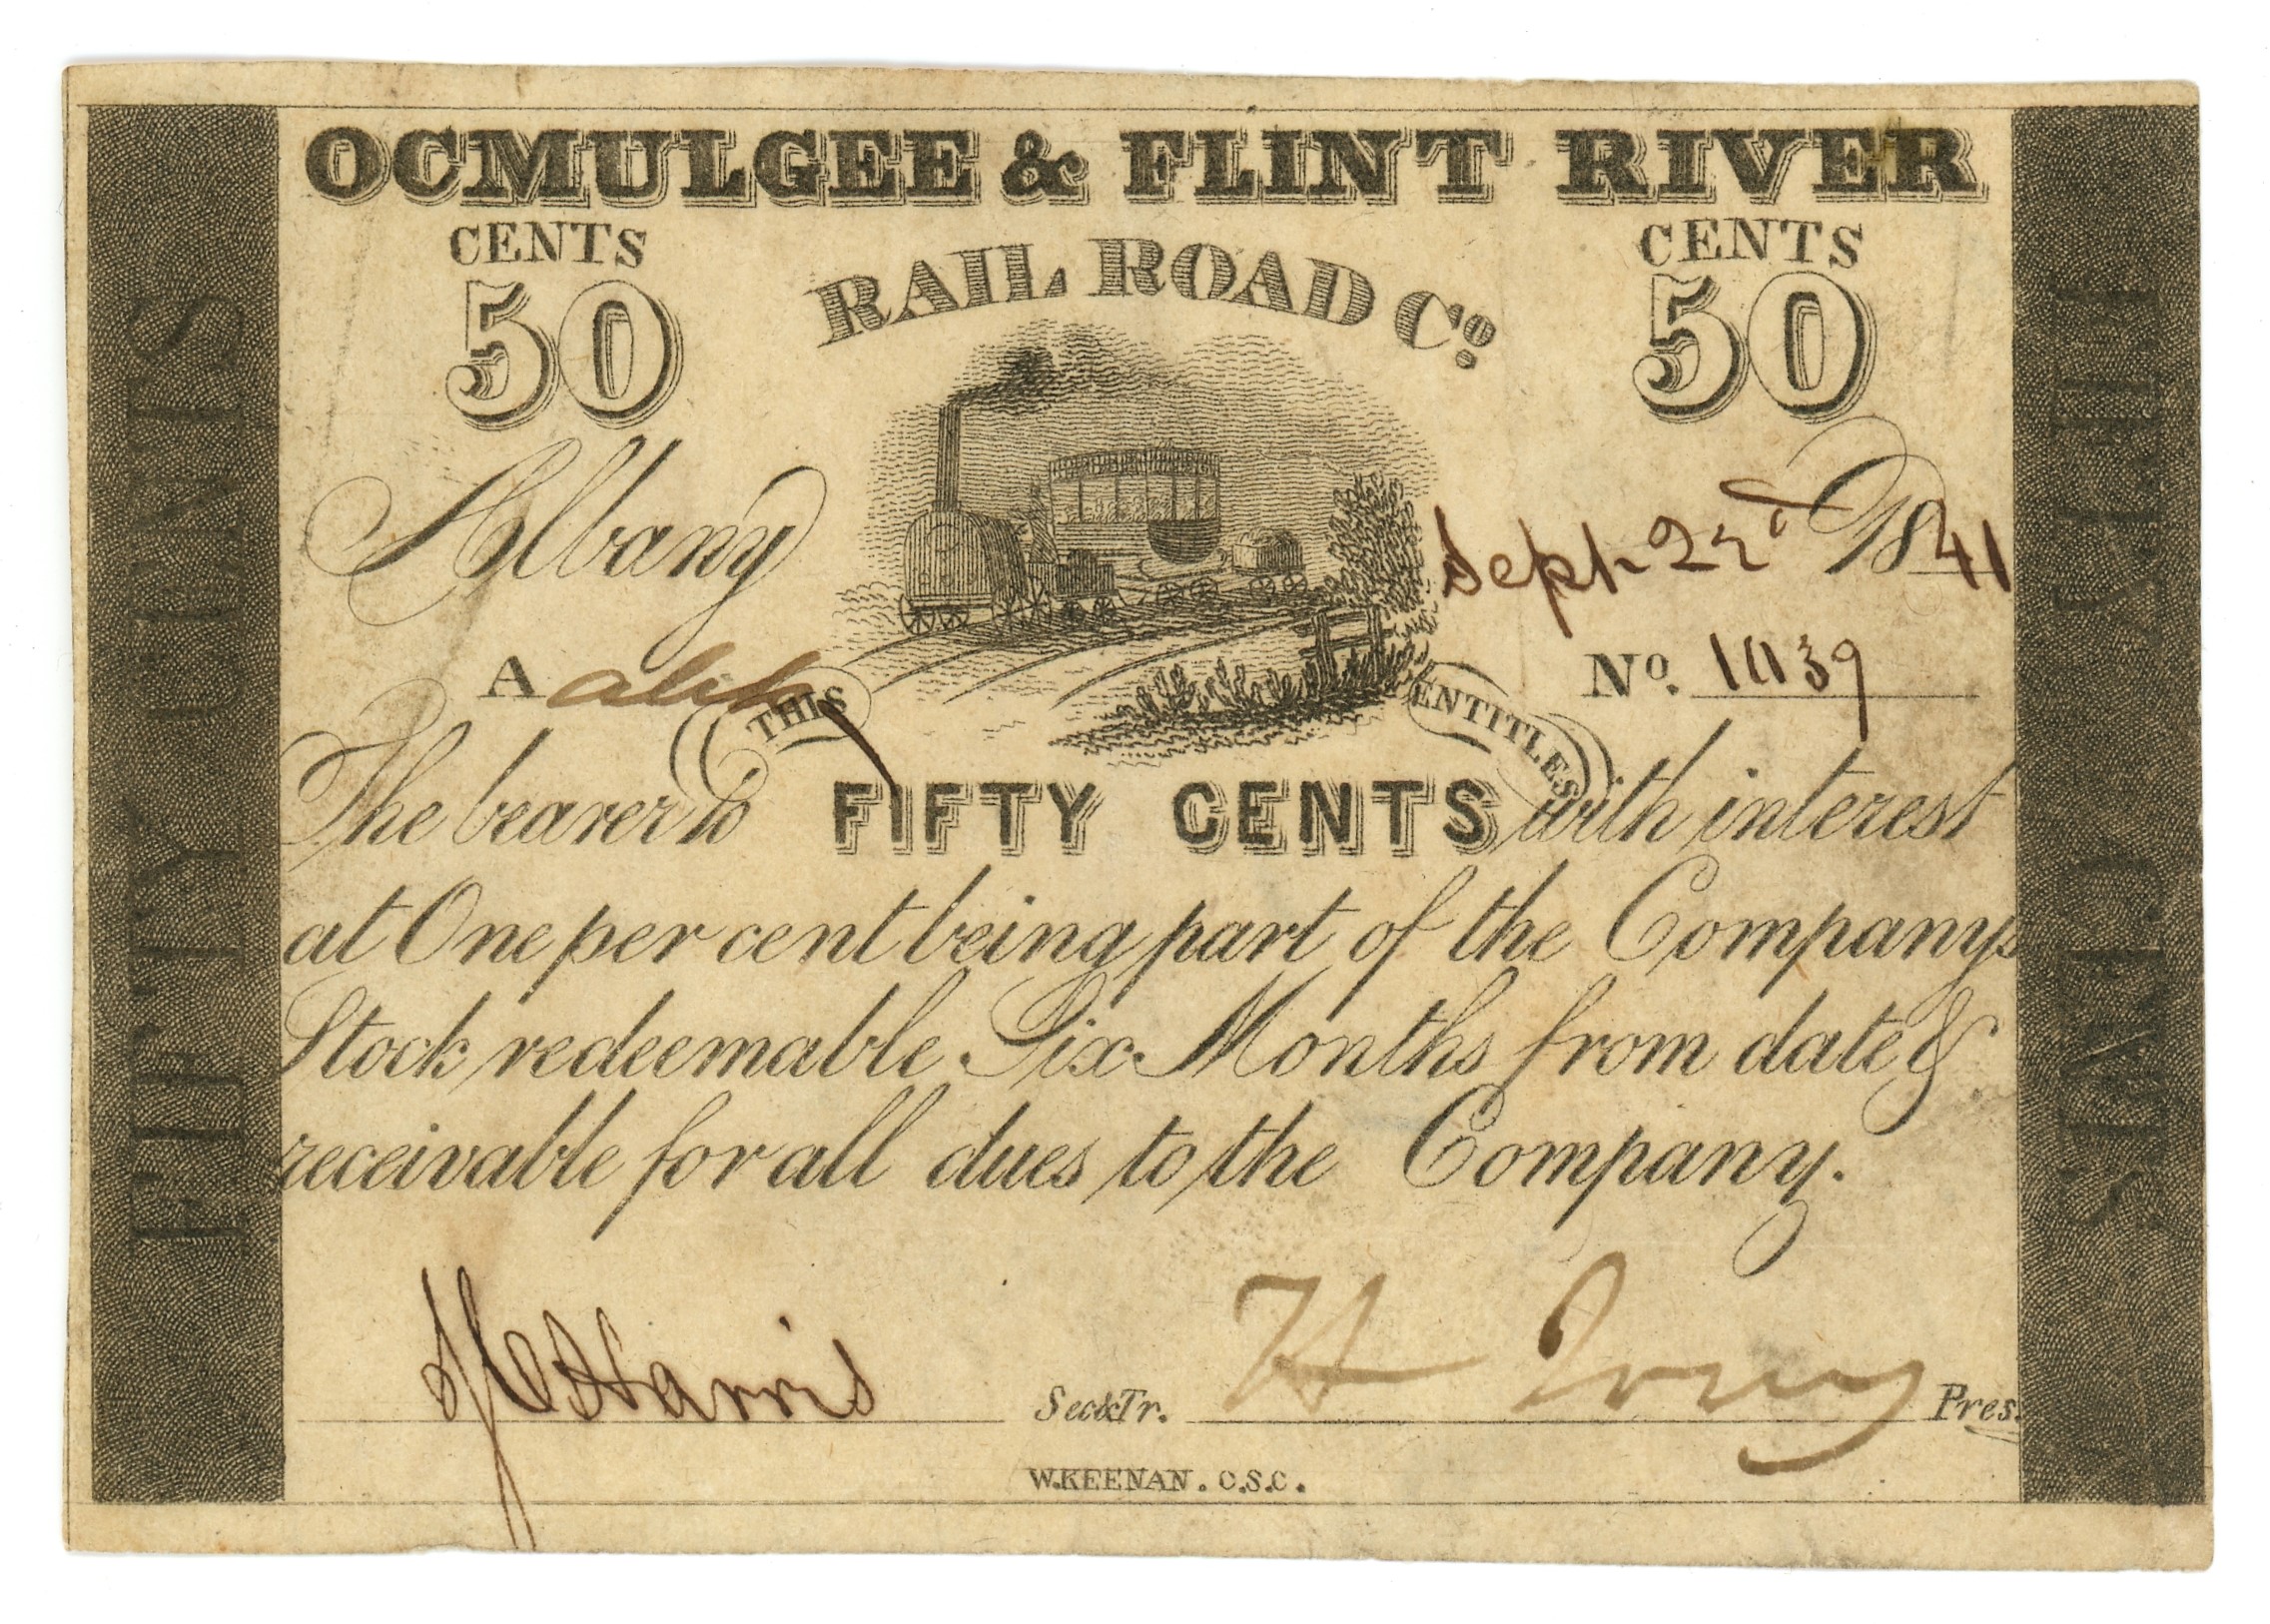 OCMULGEE & FLINT RIVER
RAIL ROAD Co.
CENTS
50
CENTS
50
FIFTY CENTS
FIFTY CENTS
Albany
Sept 22d 1841
A
No. 1039
THIS ENTITLES
The bearer to FIFTY CENTS with interest
at One per cent being part of the Companys
Stock redeemable Six Months from date &
receivable for all dues to the Company.
Harris Sec&Tr. Pres.
W.KEENAN. C.S.C.